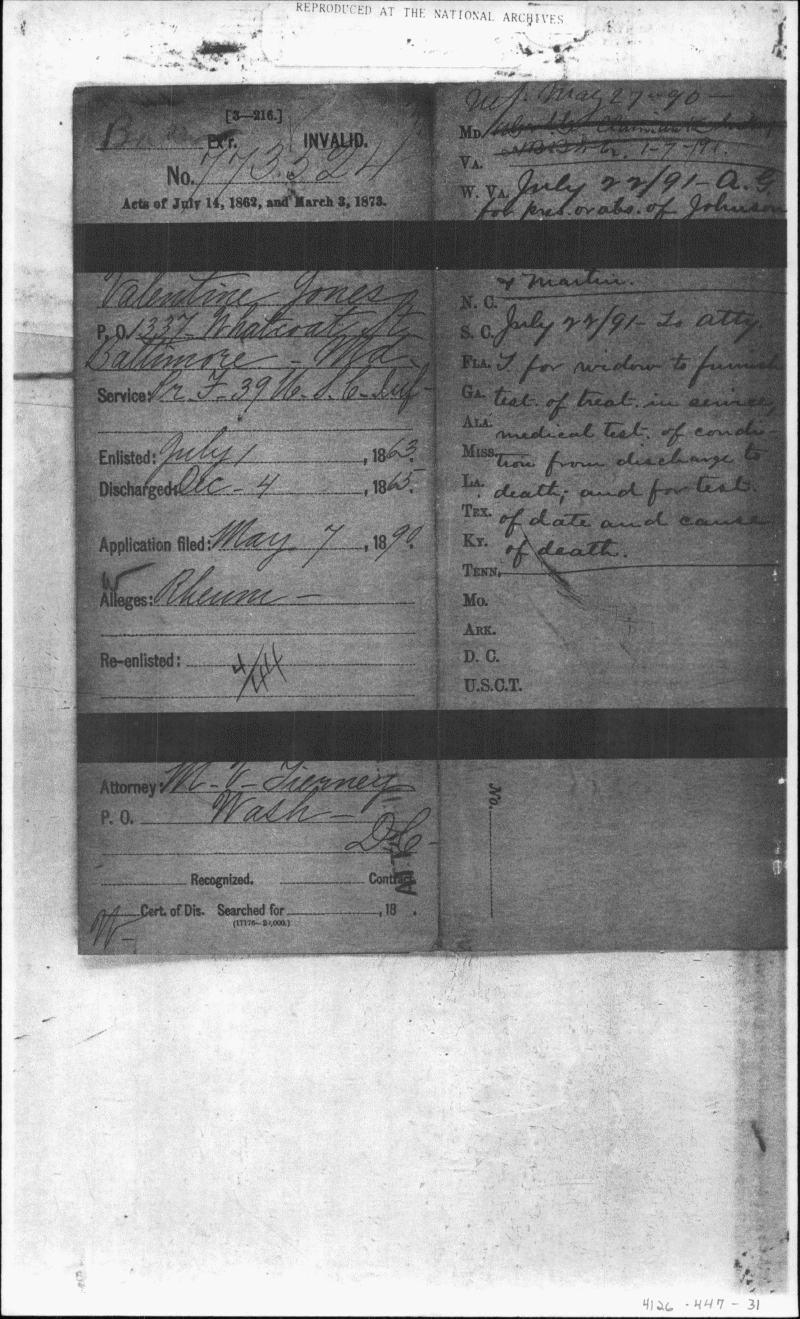 REPRODUCED AT THE NATIONAL ARCHIVES
[3—216.]
Ex'r.
INVALID.
No. 773.524
Acts of July 14, 1862, and March 3, 1873.
Valentine Jones
P. O. 1337 Whatcoat St.
Baltimore - Md.
Service: Pr. F - 39 U. S. C. Inf -
Enlisted: July 1, 1863.
Discharged: Dec - 4, 1865.
Application filed: May 7, 1890.
Alleges: Rheum -
Re-enlisted:
4/44
Attorney: M - V - Tierney
P. O. Wash -
D C -
ATT
Recognized. Contract.
Cert. of Dis. Searched for , 18 .
(17176—20,000.)
W -
May 27 - 90 -
MD.
1-7-'91.
VA.
W. VA. July 22/91 - A. G.
for pres. or abs. of Johnson
& Martin.
N. C.
S. C. July 22/91 - To atty.
FLA. T. for widow to furnish
GA. test. of treat. in service,
ALA.
medical test. of condi-
MISS. tion from discharge to
LA. death; and for test.
TEX. of date and cause
KY. of death.
TENN.
MO.
ARK.
D. C.
U.S.C.T.
No.
4126 - 447 - 31